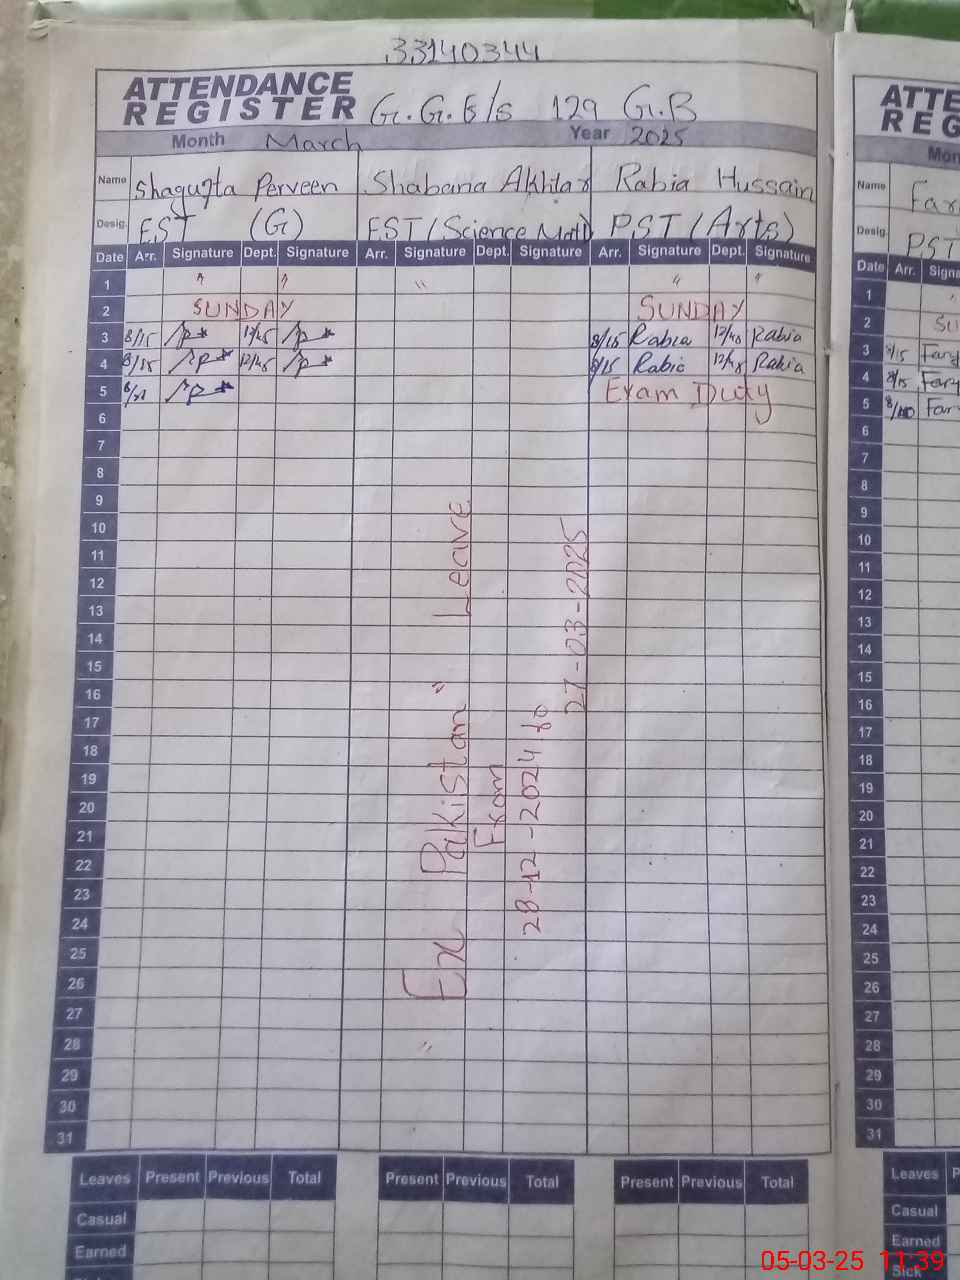 33140344
ATTENDANCE
REGISTER G.G.E/s 129 G.B
Month March Year 2025
Name Shagufta Perveen Shabana Akhtar Rabia Hussain
Desig. EST (G) EST (Science Math) PST (Arts)
Date Arr. Signature Dept. Signature Arr. Signature Dept. Signature Arr. Signature Dept. Signature
1 " " " " "
2 SUNDAY SUNDAY
3 8/15 12/45 8/15 Rabia 12/45 Rabia
4 8/15 12/45 8/15 Rabia 12/45 Rabia
5 Exam Duty
6
7
8
9
10
11
12
13
14
15
16
17
18
19
20
21
22
23
24
25
26
27
28
29
30
31
" Ex Pakistan " Leave
Exam
28-12-2024 to
27-03-2025
Leaves Present Previous Total Present Previous Total Present Previous Total
Casual
Earned
ATTE
REG
Mon
Name Far
Desig. PST
Date Arr. Signa
1 "
2 SU
3 8/15 Far
4 8/15 Far
5 Far
6
7
8
9
10
11
12
13
14
15
16
17
18
19
20
21
22
23
24
25
26
27
28
29
30
31
Leaves P
Casual
Earned
Sick
05-03-25 11:39